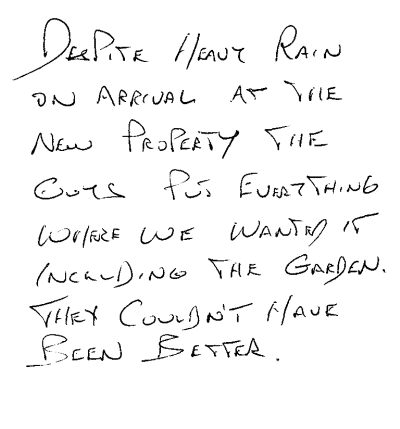 DESPITE HEAVY RAIN
ON ARRIVAL AT THE
NEW PROPERTY THE
GUYS PUT EVERYTHING
WHERE WE WANTED IT
INCLUDING THE GARDEN.
THEY COULDN'T HAVE
BEEN BETTER.